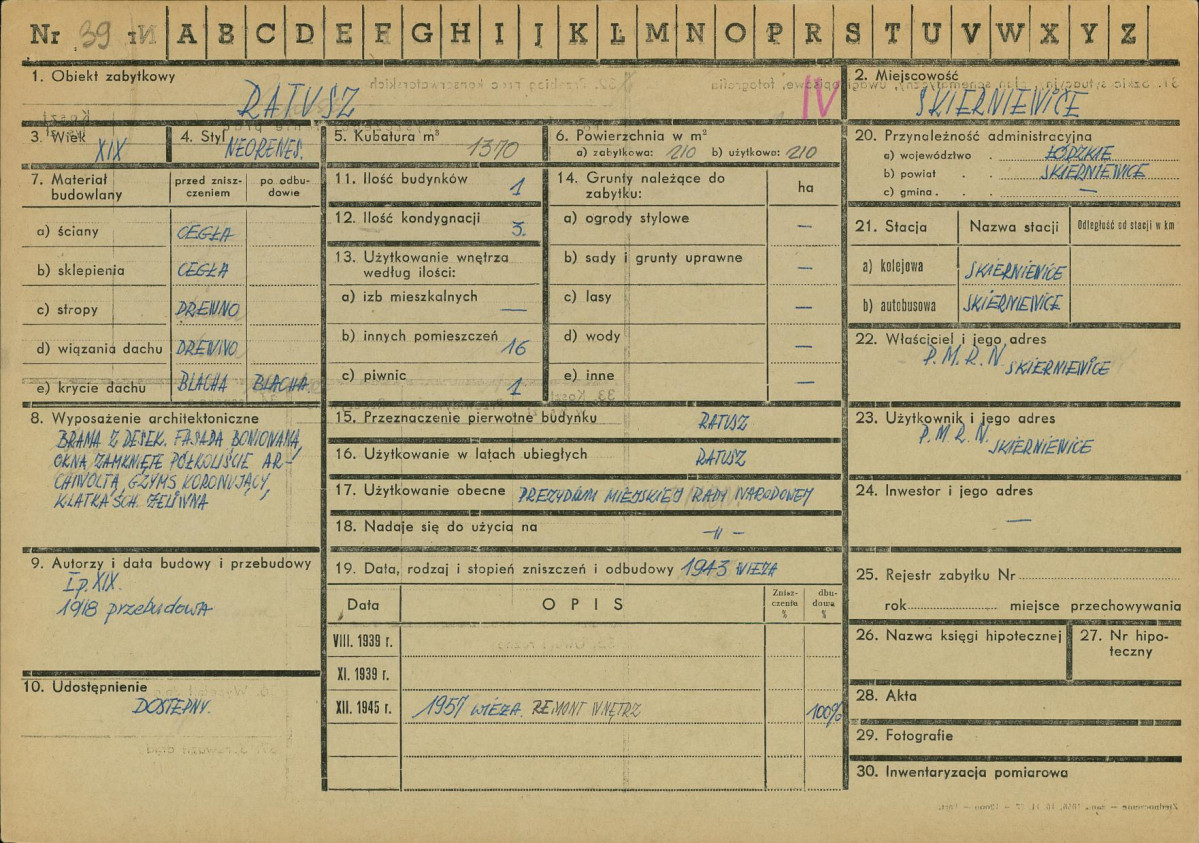 Nr 39 A B C D E F G H I J K L M N O P R S T U V W X Y Z
1. Obiekt zabytkowy
RATUSZ
IV
2. Miejscowość
SKIERNIEWICE
3. Wiek
XIX
4. Styl
NEORENES.
5. Kubatura m³
1370
6. Powierzchnia w m²
a) zabytkowa: 210 b) użytkowa: 210
20. Przynależność administracyjna
a) województwo . ŁÓDZKIE
b) powiat . . SKIERNIEWICE
c) gmina . . . —
7. Materiał budowlany
przed znisz-
czeniem
po odbu-
dowie
a) ściany CEGŁA
b) sklepienia CEGŁA
c) stropy DREWNO
d) wiązania dachu DREWNO
e) krycie dachu BLACHA BLACHA
11. Ilość budynków 1
12. Ilość kondygnacji 3.
13. Użytkowanie wnętrza
według ilości:
a) izb mieszkalnych —
b) innych pomieszczeń 16
c) piwnic 1
14. Grunty należące do
zabytku:
ha
a) ogrody stylowe —
b) sady i grunty uprawne —
c) lasy —
d) wody —
e) inne —
21. Stacja Nazwa stacji Odległość od stacji w km
a) kolejowa SKIERNIEWICE
b) autobusowa SKIERNIEWICE
22. Właściciel i jego adres
P.M.R.N. SKIERNIEWICE
8. Wyposażenie architektoniczne
BRAMA Z DESEK. FASADA BONIOWANA,
OKNA ZAMKNIĘTE PÓŁKOLIŚCIE AR-
CHIWOLTĄ, GZYMS KORONUJĄCY,
KLATKA SCH. ŻELIWNA
15. Przeznaczenie pierwotne budynku RATUSZ
16. Użytkowanie w latach ubiegłych RATUSZ
17. Użytkowanie obecne PREZYDIUM MIEJSKIEJ RADY NARODOWEJ
18. Nadaje się do użycia na -"-
23. Użytkownik i jego adres
P.M.R.N. SKIERNIEWICE
24. Inwestor i jego adres
—
9. Autorzy i data budowy i przebudowy
I p. XIX.
1918 przebudowa
10. Udostępnienie
DOSTĘPNY.
19. Data, rodzaj i stopień zniszczeń i odbudowy 1943 WIEŻA
Data OPIS
Znisz-
czeniu
%
dbu-
dowa
%
VIII. 1939 r.
XI. 1939 r.
XII. 1945 r. 1957 WIEŻA. REMONT WNĘTRZ 100%
25. Rejestr zabytku Nr
rok miejsce przechowywania
26. Nazwa księgi hipotecznej
27. Nr hipo-
teczny
28. Akta
29. Fotografie
30. Inwentaryzacja pomiarowa